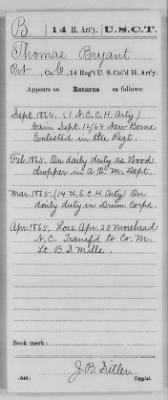 B | 14 H. Art'y. | U.S.C.T.
Thomas Bryant
Pvt, Co. C, 14 Reg't U. S. Col'd H. Art'y.
Appears on
Returns as follows:
Sept. 1864. (1 N.C.C.H. Arty)
Gain Sept. 12/64 New Berne
Enlisted in the Regt.
Feb. 1865. On daily duty as Wood
chopper in A. Q. M. Dept.
Mar. 1865. (14 U.S.C.H. Arty) On
daily duty in Drum Corps.
Apr. 1865. Loss Apr. 20 Morehead
N.C. Transf'd to Co. M.
Lt. B. S. Mills.
Book mark:
J. B. Sitler.
(546) Copyist.